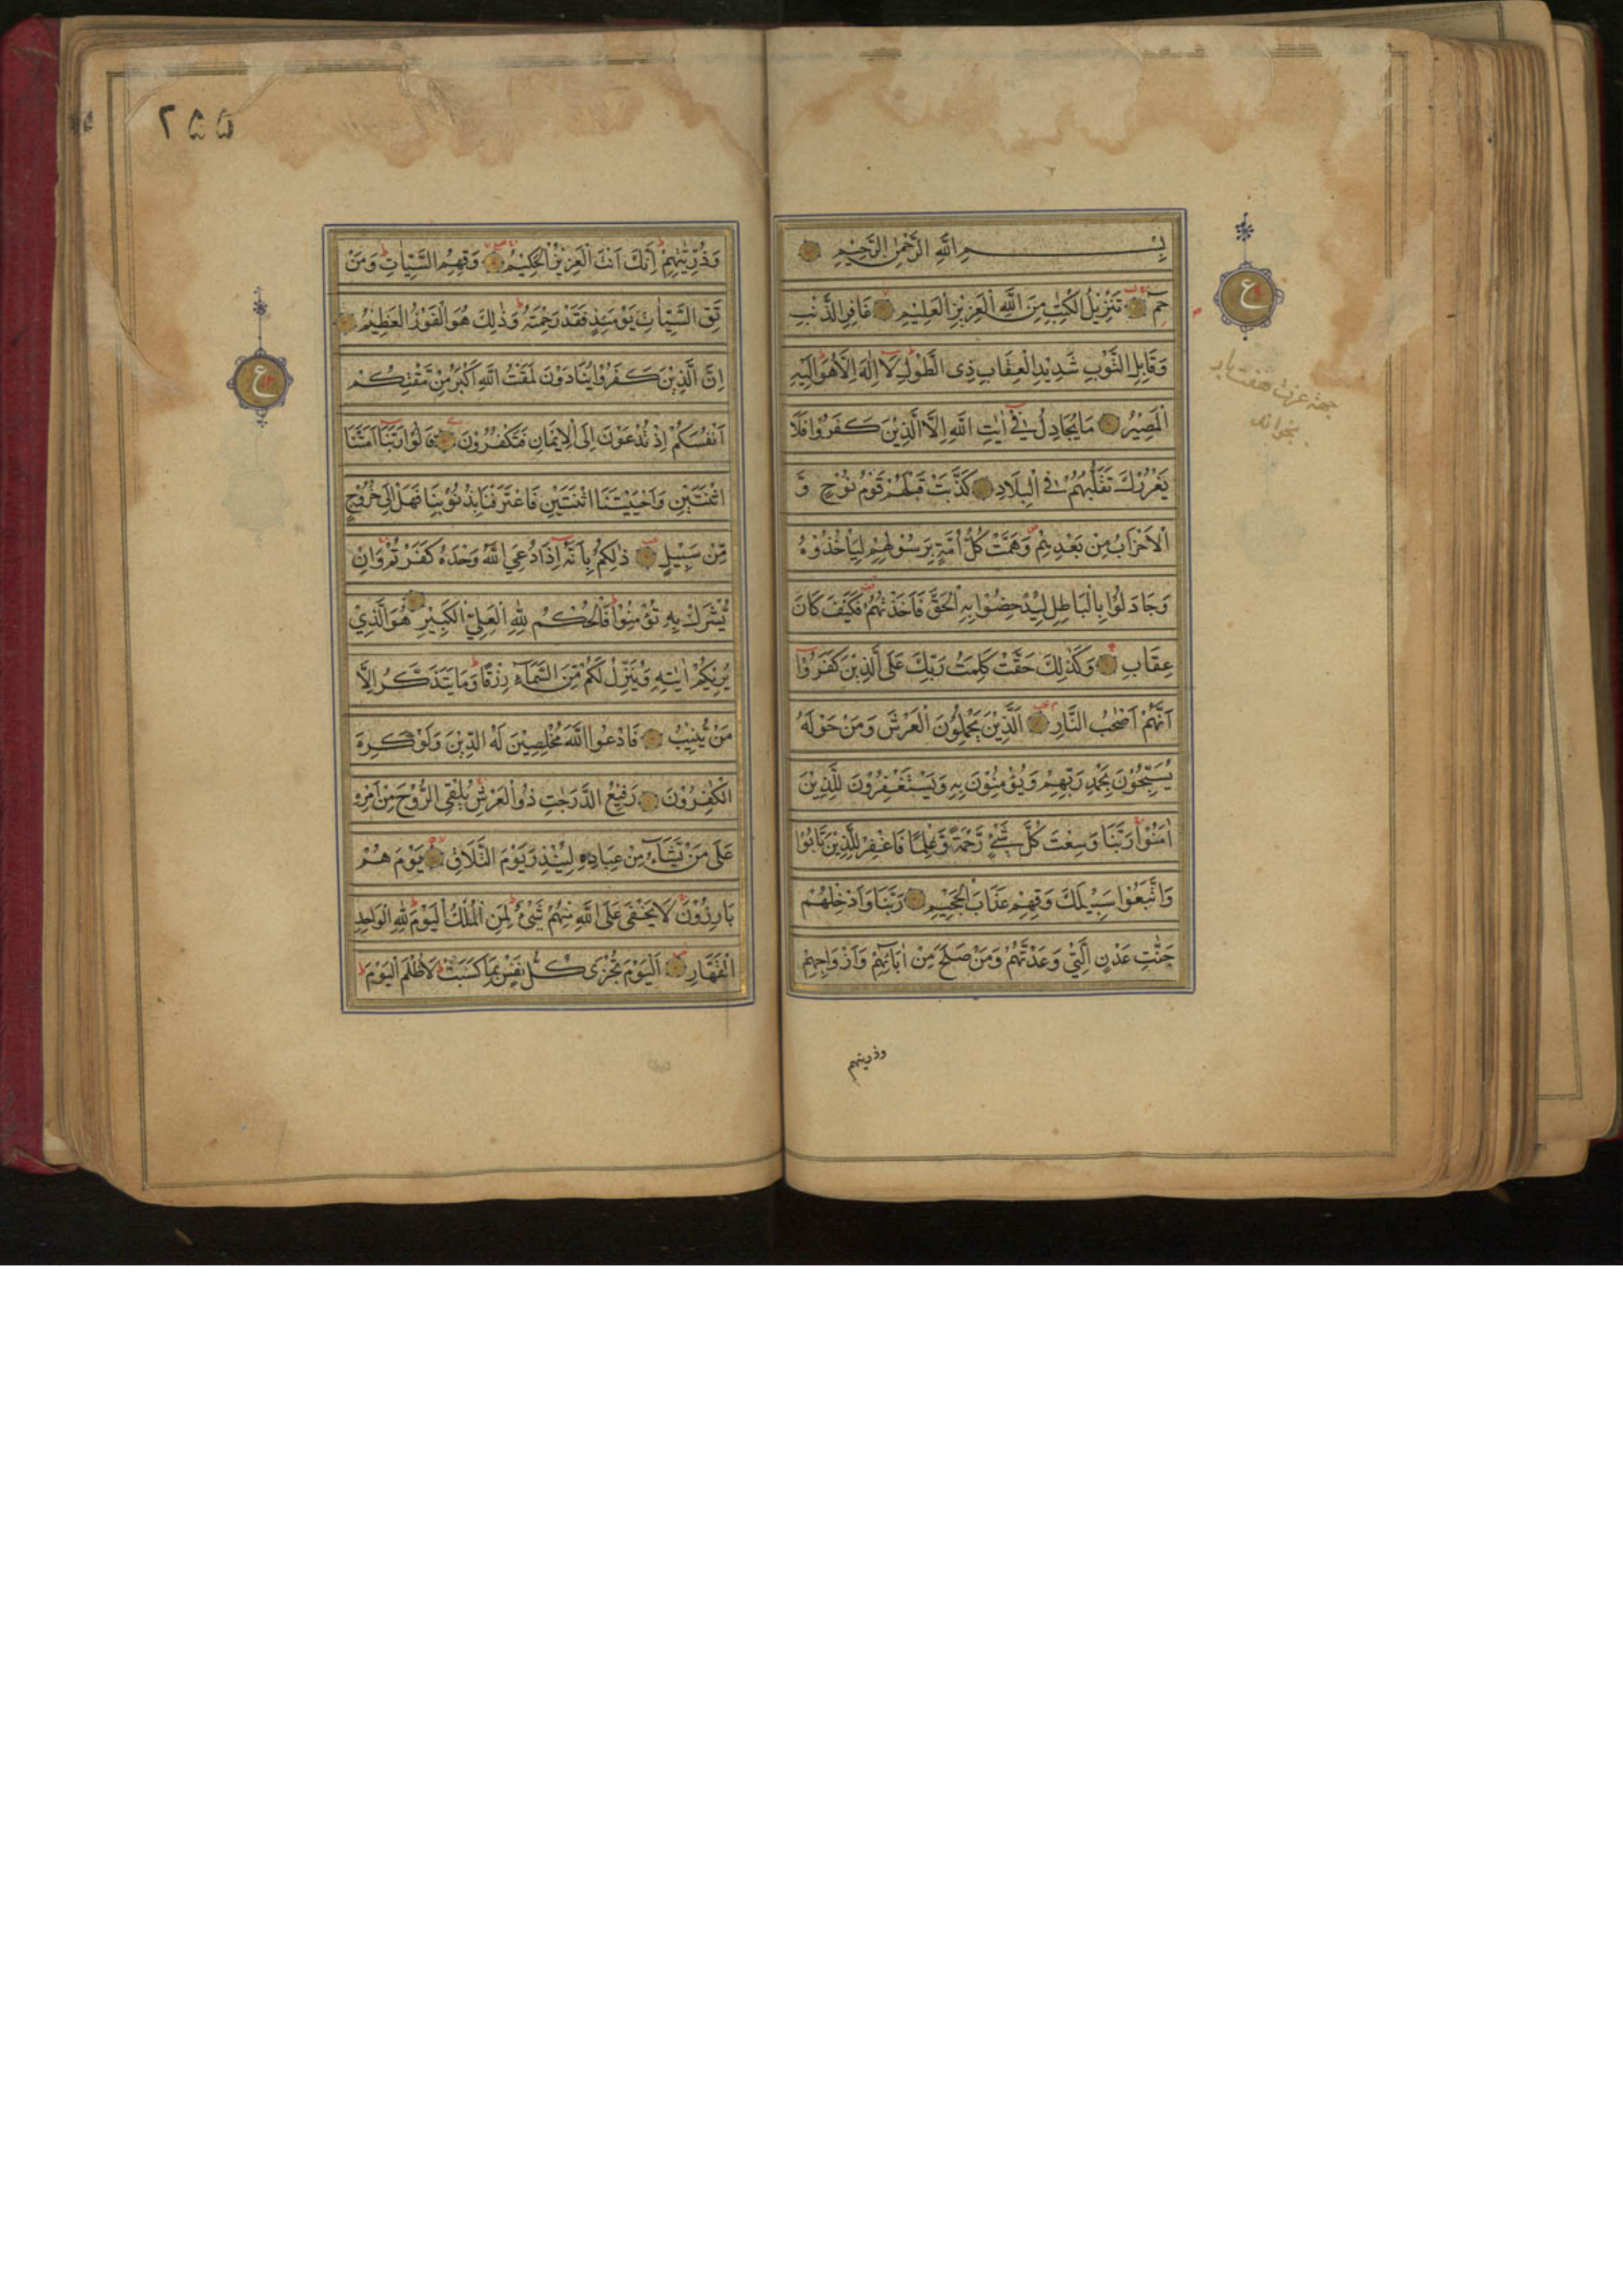 بِسْمِ اللَّهِ الرَّحْمٰنِ الرَّحِيْمِ
حٰمٓ تَنْزِيْلُ الْكِتٰبِ مِنَ اللَّهِ الْعَزِيْزِ الْعَلِيْمِ غَافِرِ الذَّنْبِ
وَقَابِلِ التَّوْبِ شَدِيْدِ الْعِقَابِ ذِى الطَّوْلِ لَا اِلٰهَ اِلَّا هُوَ اِلَيْهِ
الْمَصِيْرُ مَا يُجَادِلُ فِيْ اٰيٰتِ اللَّهِ اِلَّا الَّذِيْنَ كَفَرُوْا فَلَا
يَغْرُرْكَ تَقَلُّبُهُمْ فِي الْبِلَادِ كَذَّبَتْ قَبْلَهُمْ قَوْمُ نُوْحٍ وَّ
الْاَحْزَابُ مِنْ بَعْدِهِمْ وَهَمَّتْ كُلُّ اُمَّةٍ بِرَسُوْلِهِمْ لِيَاْخُذُوْهُ
وَجَادَلُوْا بِالْبَاطِلِ لِيُدْحِضُوْا بِهِ الْحَقَّ فَاَخَذْتُهُمْ فَكَيْفَ كَانَ
عِقَابِ وَكَذٰلِكَ حَقَّتْ كَلِمَتُ رَبِّكَ عَلَى الَّذِيْنَ كَفَرُوْا
اَنَّهُمْ اَصْحٰبُ النَّارِ اَلَّذِيْنَ يَحْمِلُوْنَ الْعَرْشَ وَمَنْ حَوْلَهُ
يُسَبِّحُوْنَ بِحَمْدِ رَبِّهِمْ وَيُؤْمِنُوْنَ بِهِ وَيَسْتَغْفِرُوْنَ لِلَّذِيْنَ
اٰمَنُوْا رَبَّنَا وَسِعْتَ كُلَّ شَيْءٍ رَّحْمَةً وَّعِلْمًا فَاغْفِرْ لِلَّذِيْنَ تَابُوْا
وَاتَّبَعُوْا سَبِيْلَكَ وَقِهِمْ عَذَابَ الْجَحِيْمِ رَبَّنَا وَاَدْخِلْهُمْ
جَنّٰتِ عَدْنِ الَّتِيْ وَعَدْتَّهُمْ وَمَنْ صَلَحَ مِنْ اٰبَآئِهِمْ وَاَزْوَاجِهِمْ
وذريتهم
ع
بخواند
٢۵۵
وَذُرِّيّٰتِهِمْ اِنَّكَ اَنْتَ الْعَزِيْزُ الْحَكِيْمُ وَقِهِمُ السَّيِّاٰتِ وَمَنْ
تَقِ السَّيِّاٰتِ يَوْمَئِذٍ فَقَدْ رَحِمْتَهُ وَذٰلِكَ هُوَ الْفَوْزُ الْعَظِيْمُ
اِنَّ الَّذِيْنَ كَفَرُوْا يُنَادَوْنَ لَمَقْتُ اللَّهِ اَكْبَرُ مِنْ مَّقْتِكُمْ
اَنْفُسَكُمْ اِذْ تُدْعَوْنَ اِلَى الْاِيْمَانِ فَتَكْفُرُوْنَ قَالُوْا رَبَّنَا اَمَتَّنَا
اثْنَتَيْنِ وَاَحْيَيْتَنَا اثْنَتَيْنِ فَاعْتَرَفْنَا بِذُنُوْبِنَا فَهَلْ اِلٰى خُرُوْجٍ
مِّنْ سَبِيْلٍ ذٰلِكُمْ بِاَنَّهُ اِذَا دُعِيَ اللَّهُ وَحْدَهُ كَفَرْتُمْ وَاِنْ
يُّشْرَكْ بِهِ تُؤْمِنُوْا فَالْحُكْمُ لِلّٰهِ الْعَلِيِّ الْكَبِيْرِ هُوَ الَّذِيْ
يُرِيْكُمْ اٰيٰتِهِ وَيُنَزِّلُ لَكُمْ مِّنَ السَّمَآءِ رِزْقًا وَمَا يَتَذَكَّرُ اِلَّا
مَنْ يُّنِيْبُ فَادْعُوا اللَّهَ مُخْلِصِيْنَ لَهُ الدِّيْنَ وَلَوْ كَرِهَ
الْكٰفِرُوْنَ رَفِيْعُ الدَّرَجٰتِ ذُو الْعَرْشِ يُلْقِى الرُّوْحَ مِنْ اَمْرِهِ
عَلٰى مَنْ يَّشَآءُ مِنْ عِبَادِهِ لِيُنْذِرَ يَوْمَ التَّلَاقِ يَوْمَ هُمْ
بَارِزُوْنَ لَا يَخْفٰى عَلَى اللَّهِ مِنْهُمْ شَيْءٌ لِمَنِ الْمُلْكُ الْيَوْمَ لِلّٰهِ الْوَاحِدِ
الْقَهَّارِ اَلْيَوْمَ تُجْزٰى كُلُّ نَفْسٍ بِمَا كَسَبَتْ لَا ظُلْمَ الْيَوْمَ
ع